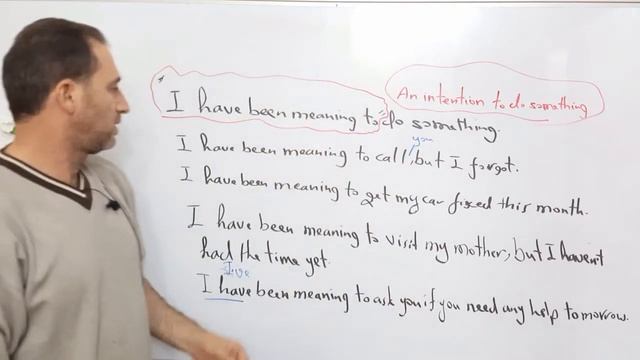 An intention to do something
I have been meaning to do something.
you
I have been meaning to call, but I forgot.
I have been meaning to get my car fixed this month.
I have been meaning to visit my mother, but I haven't
had the time yet.
I've
I have been meaning to ask you if you need any help tomorrow.